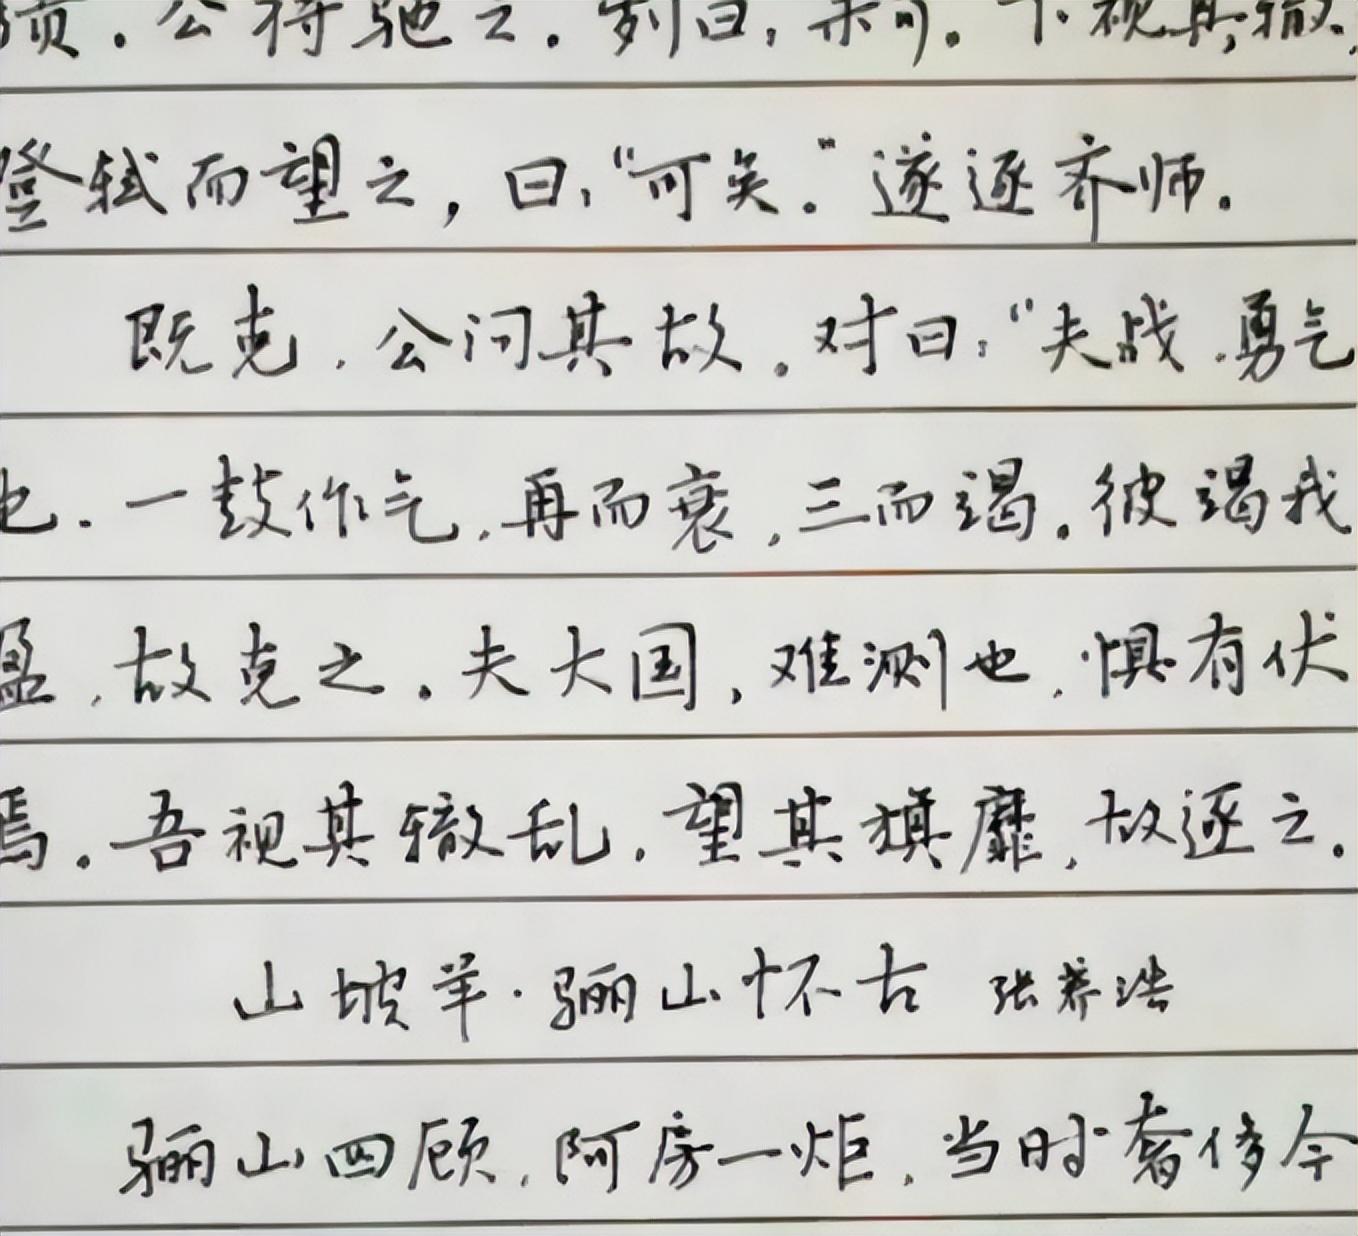 绩。公将驰之。刿曰：未可。下视其辙，
登轼而望之，曰：“可矣。”遂逐齐师。
既克，公问其故。对曰：“夫战，勇气
也。一鼓作气，再而衰，三而竭。彼竭我
盈，故克之。夫大国，难测也，惧有伏
焉。吾视其辙乱，望其旗靡，故逐之。
山坡羊·骊山怀古 张养浩
骊山四顾，阿房一炬，当时奢侈今